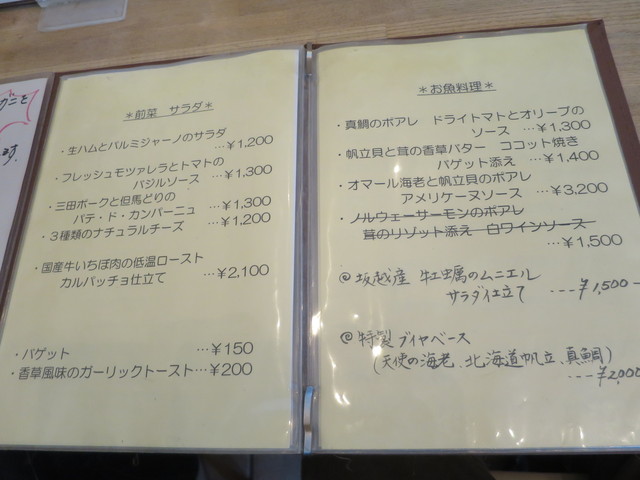 ＊前菜 サラダ＊
・生ハムとパルミジャーノのサラダ
…￥1,200
・フレッシュモツァレラとトマトの
バジルソース …￥1,300
・三田ポークと但馬どりの
パテ・ド・カンパーニュ …￥1,300
・３種類のナチュラルチーズ …￥1,200
・国産牛いちぼ肉の低温ロースト
カルパッチョ仕立て …￥2,100
・バゲット …￥150
・香草風味のガーリックトースト…￥200
＊お魚料理＊
・真鯛のポアレ ドライトマトとオリーブの
ソース …￥1,300
・帆立貝と茸の香草バター ココット焼き
バゲット添え …￥1,400
・オマール海老と帆立貝のポアレ
アメリケーヌソース …￥3,200
・ノルウェーサーモンのポアレ
茸のリゾット添え 白ワインソース
…￥1,500
@ 坂越産 牡蠣のムニエル
サラダ仕立て ---￥1,500-
@ 特製ブイヤベース
(天使の海老、北海道帆立、真鯛)
---￥2,000